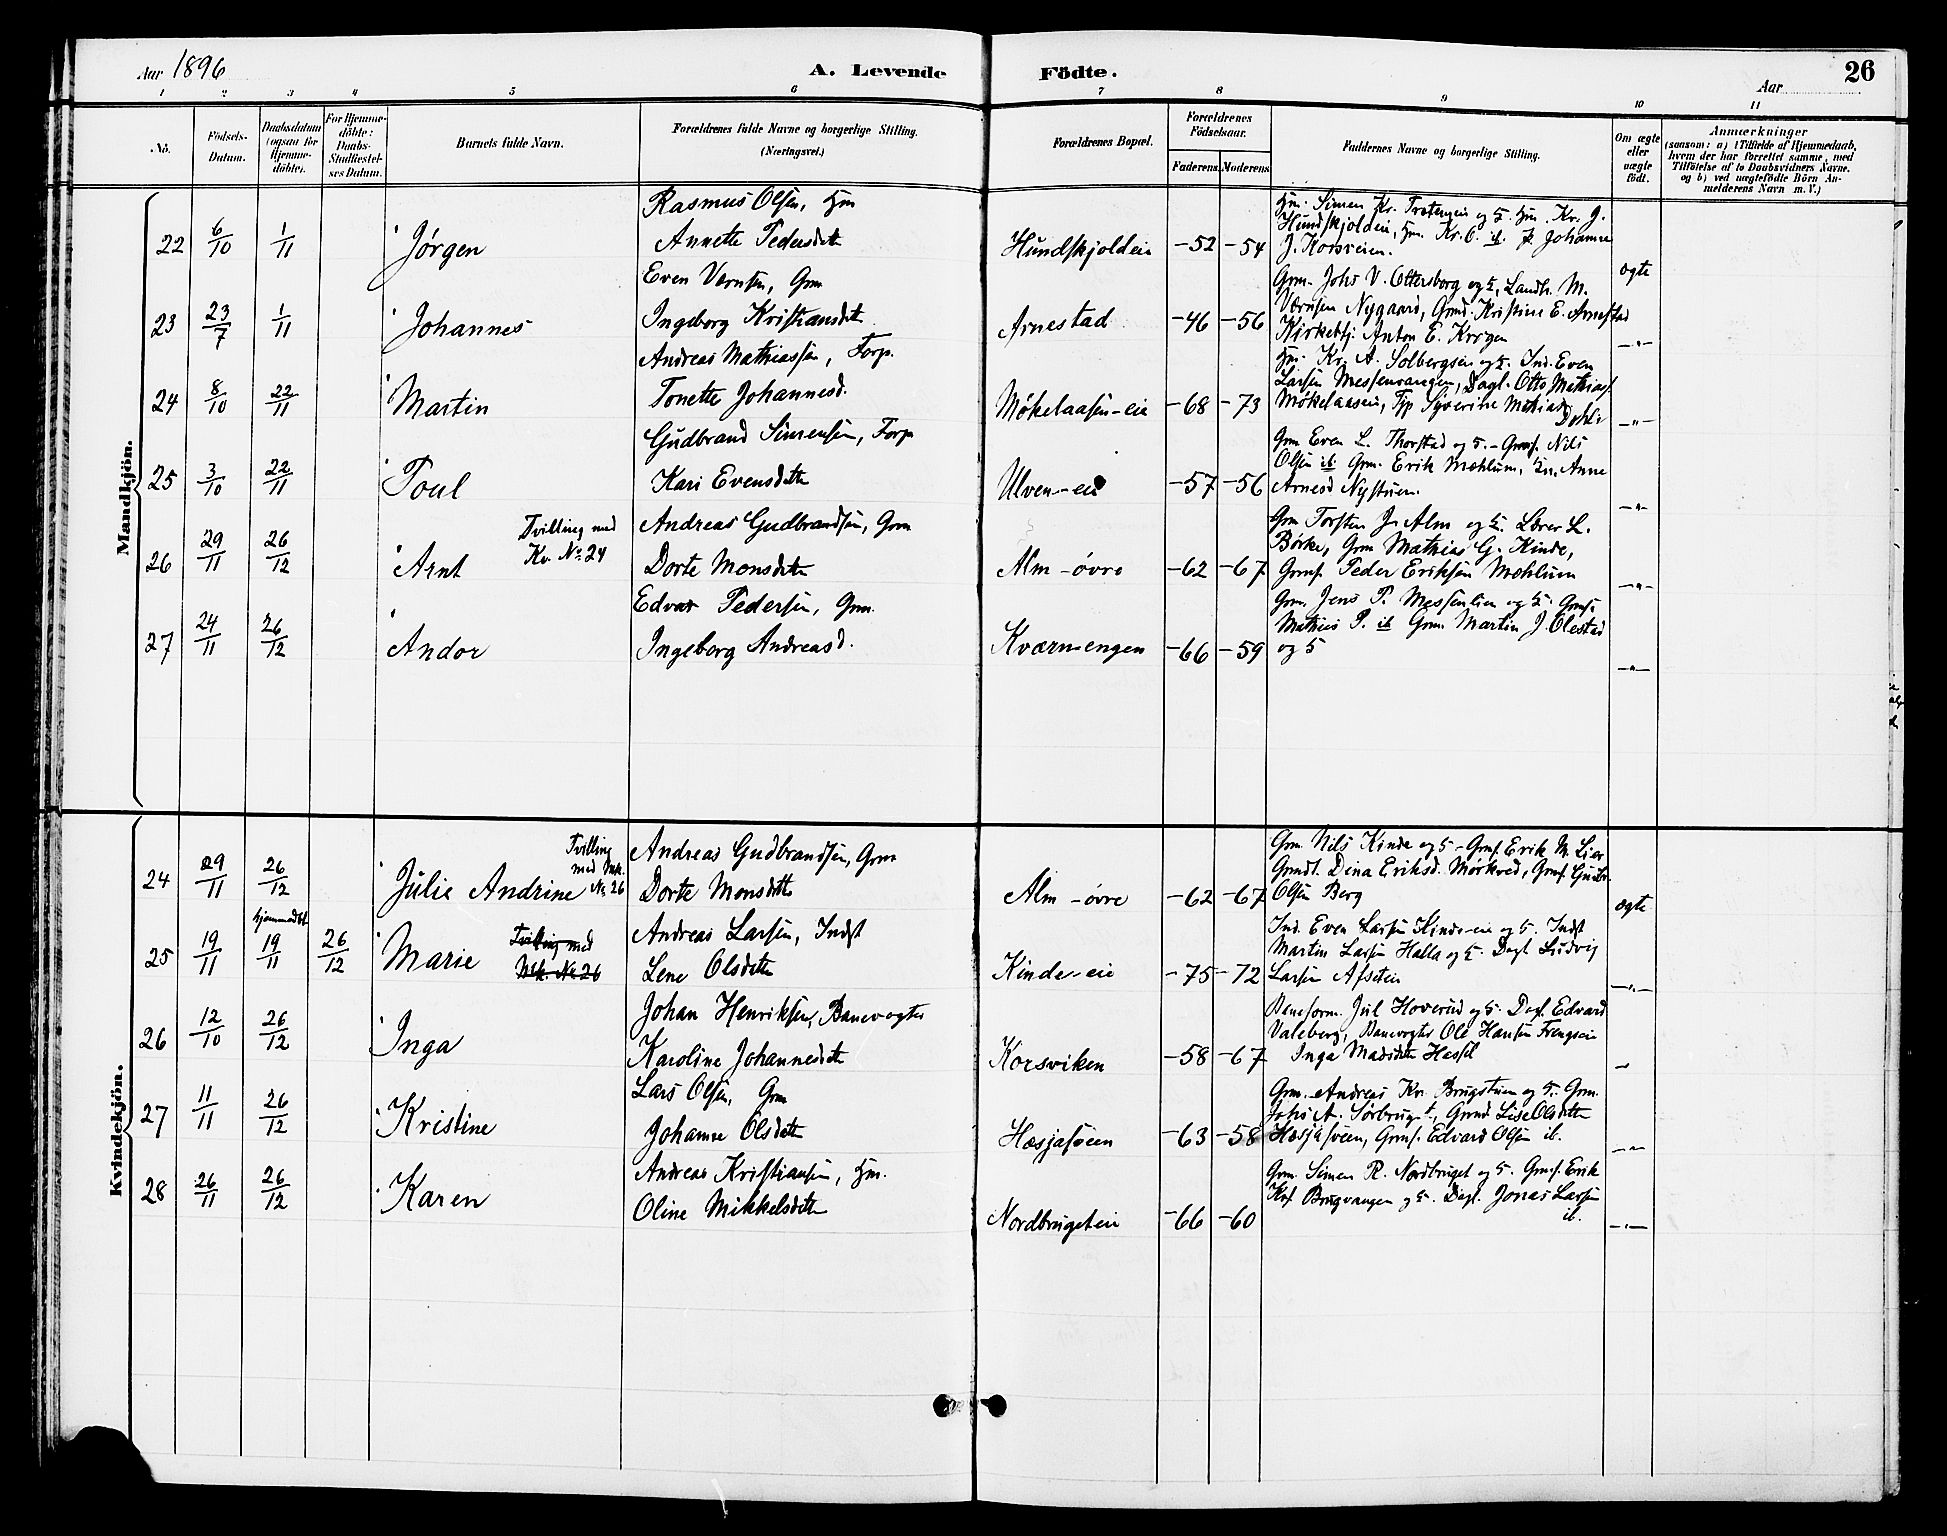 Aar 1896
A. Levende
Födte.
Aar
26
1 2 3 4 5 6 7 8 9 10 11
No.
Födsels-
Datum.
Daabsdatum
(ogsaa for
Hjemme-
döbte).
For Hjemme-
döbte:
Daabs-
Stadfæstel-
ses Datum.
Barnets fulde Navn.
Forældrenes fulde Navne og borgerlige Stilling.
(Næringsvei.)
Forældrenes Bopæl.
Forældrenes
Födselsaar.
Faderens. Moderens.
Faddernes Navne og borgerlige Stilling.
Om ægte
eller
uægte
födt.
Anmærkninger
(saasom: a) i Tilfælde af Hjemmedaab,
hvem der har forrettet samme, med
Tilföielse af to Daabsvidners Navne.
og b) ved uægtefödte Börn An-
melderens Navn m. V.)
Mandkjön.
22 6/10 1/11 Jørgen
Rasmus Olsen, Hm
Annette Pedersdtt
Hundskjoldeie -52 -54
Hm. Simen Kr. Troterseie og 5. Hm. Kr. J.
Hundskjoldeie, Hm. Kr. O. ib. P. Johanne
J. Korsveien.
ægte
23 23/7 1/11 Johannes
Even Værnsen, Grm
Ingeborg Kristiansdtt
Arnestad -46 -56
Grm. Johs V. Ottersborg og 5, Landh. M.
Værnsen Nygaard, Grmd. Kristine E. Arnestad
Kirkebtj. Anton E. Krogen
-"-
24 8/10 22/11 Martin
Andreas Mathiassen, Forp.
Tonette Johannesd.
Møkelaasen-eie -68 -73
Hm. Kr. A. Solbergseie og 5. Ind. Even
Larsen Messenvangen, Dagl. Otto Mathiasf
Møkelaaseie, Tjp Syverine Mathiasd
Dahle
-"-
25 3/10 22/11 Poul
Gudbrand Simensen, Forp
Kari Evensdatter
Ulven-eie -57 -56
Grm Even L. Thorstad og 5. - Grmf. Nils
Olsen ib Grm. Erik Mæhlum, En. Anne
Arnesd Nystuen.
-"-
26 29/11 26/12 Arnt
Tvilling med
Kv. No. 24
Andreas Gudbrandsen, Grm
Dorte Monsdatter
Alm - øvre -62 -67
Grm Torsten J. Alm og 5. Lærer L.
Børke, Grm Mathias G. Kinde,
Grmf. Peder Eriksen Mæhlum
-"-
27 24/11 26/12 Andor
Edvar Pedersen, Grm.
Ingeborg Andreasd.
Kværnengen -66 -59
Grm. Jens P. Messenlien og 5. Grmf:
Mathias P. ib Grm. Martin J. Olestad
og 5
-"-
Kvindekjön.
24 29/11 26/12 Julie Andrine
Tvilling
med Mk.
No. 26
Andreas Gudbrandsen, Grm
Dorte Monsdtt
Alm - øvre -62 -67
Grm. Nils Kinde og 5 - Grmf. Erik M. Lier
Grmdt. Dina Eriksd. Mørkved, Grmf. Gudbr.
Olsen Berg
ægte
25 19/11 hjemmedbt 19/11 26/12 Marie
Tvilling med
Mk. No 26
Andreas Larsen, Indst
Lene Olsdatter
Kinde-eie -75 -72
Ind. Even Larsen Kinde-eie og 5. Indst
Martin Larsen Halla og 5. Dagl Ludvig
Larsen Afseteie
-"-
26 12/10 26/12 Inga
Johan Henriksen, Banevogter
Karoline Johannesdtt
Korsviken -58 -67
Baneform. Jul Hoverud og 5. Dagl. Edvard
Valeberg, Banevogter Ole Hansen Frengseie
Inga Madsdtt Hassel
-"-
27 11/11 26/12 Kristine
Lars Olsen, Grm
Johanne Olsdatter
Hæsjasveen -63 -58
Grm. Andreas Kr. Brugstuen og 5. Grm.
Johs A. Sørbruget, Grmd. Lise Olsdatter
Hæsjasveen, Grmf. Edvard Olsen ib.
-"-
28 26/11 26/12 Karen
Andreas Kristiansen, Hm.
Oline Mikkelsdatter
Nordbrugeteie -66 -60
Grm. Simen R. Nordbruget og 5. Grmf. Erik
Krf Brugvangen og 5. Dagl. Jonas Larsen
ib.
-"-